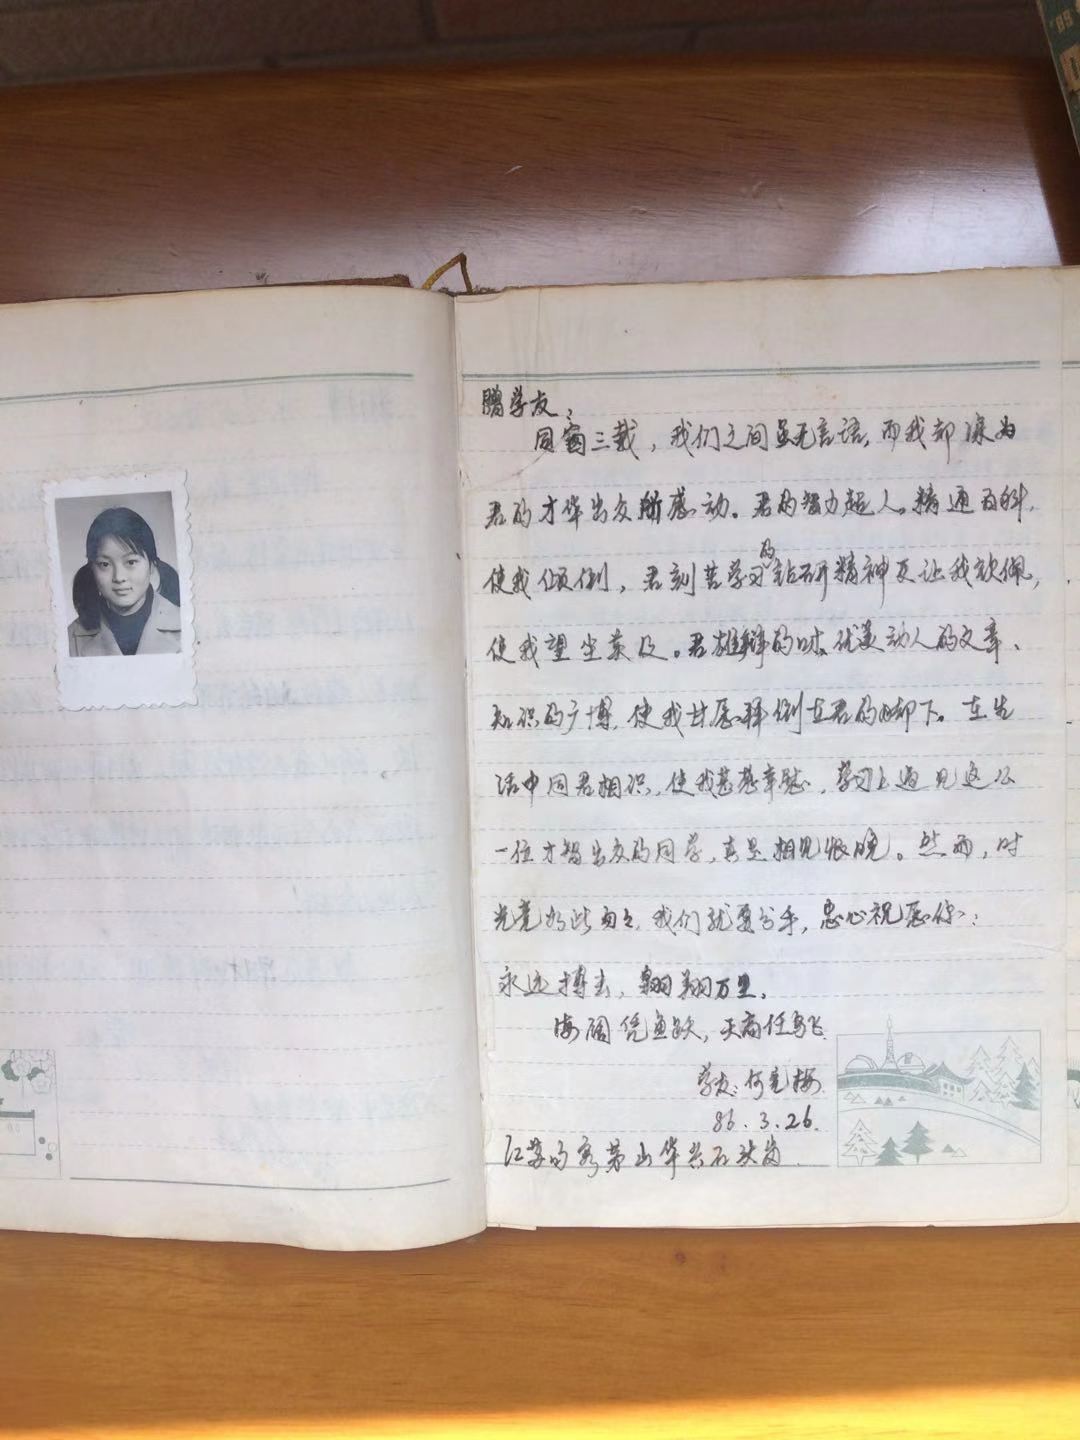 赠学友:
同窗三载，我们之间虽无言语，而我却深为
君的才华出众所感动。君的智力超人。精通百科，
使我倾倒，君刻苦学习的钻研精神更让我钦佩，
使我望尘莫及。君雄辩的口才、优美动人的文章、
知识的广博，使我甘愿拜倒在君的脚下。在生
活中同君相识，使我甚感幸慰，学习上遇见这么
一位才智出众的同学，真是相见恨晚。然而，时
光竟如此匆匆，我们就要分手，忠心祝愿你：
永远搏击，翱翔万里。
海阔凭鱼跃，天高任鸟飞
学友：何 梅
86.3.26.
江苏句容茅山华 石 岗